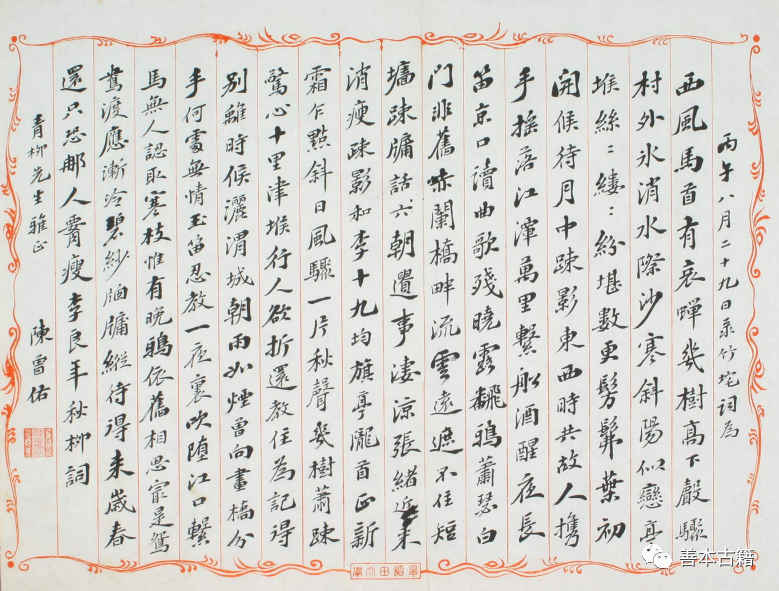 丙午八月二十九日录竹垞词为
西風馬首有哀蟬幾樹高下嚴驟
村外氷消水際沙寒斜陽似戀亭
堠絲〻縷〻紛堪數更髣髴葉初
開候待月中疎影東西時共故人携
手 摇落江潭萬里繫舩酒醒夜長
笛京口讀曲歌殘曉露翻鴉蕭瑟白
門非舊赤闌橋畔流雲遠遮不住短
墻疎牖話六朝遺事凄涼張緒近来
消瘦 疎影和李十九均 旗亭隴首正新
霜乍點斜日風驟一片秋聲幾樹蕭疎
驚心十里津堠行人欲折還教住為記得
別離時候灑渭城朝雨如煙曾向畫橋分
手 何處無情玉笛忍教一夜裏吹堕江口繫
馬無人認取寒枝惟有晚鴉依舊相思寂是鴛
鴦渡應漸冷碧紗䆫牖縱待得来歲春
還只恐那人霄瘦 李良年秋柳詞
青柳先生雅正
陳曾佑
善本古籍